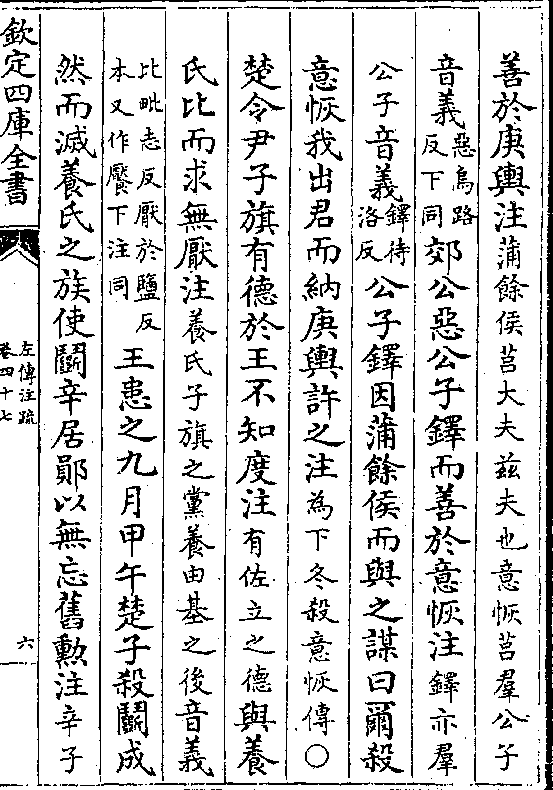 善於庚輿注蒲餘侯莒大夫兹夫也意恢莒羣公子
音義惡烏路反下同郊公惡公子鐸而善於意恢注鐸亦羣
公子音義鐸待洛反公子鐸因蒲餘侯而與之謀曰爾殺
意恢我出君而納庚輿許之注為下冬殺意恢傳○
楚令尹子旗有德於王不知度注有佐立之德與養
氏比而求無厭注養氏子旗之黨養由基之後音義
比毗志反厭於鹽反本又作饜下注同王患之九月甲午楚子殺鬬成
然而滅養氏之族使鬬辛居鄖以無忘舊勲注辛子
欽定四庫全書
左傳注疏
卷四十七
六